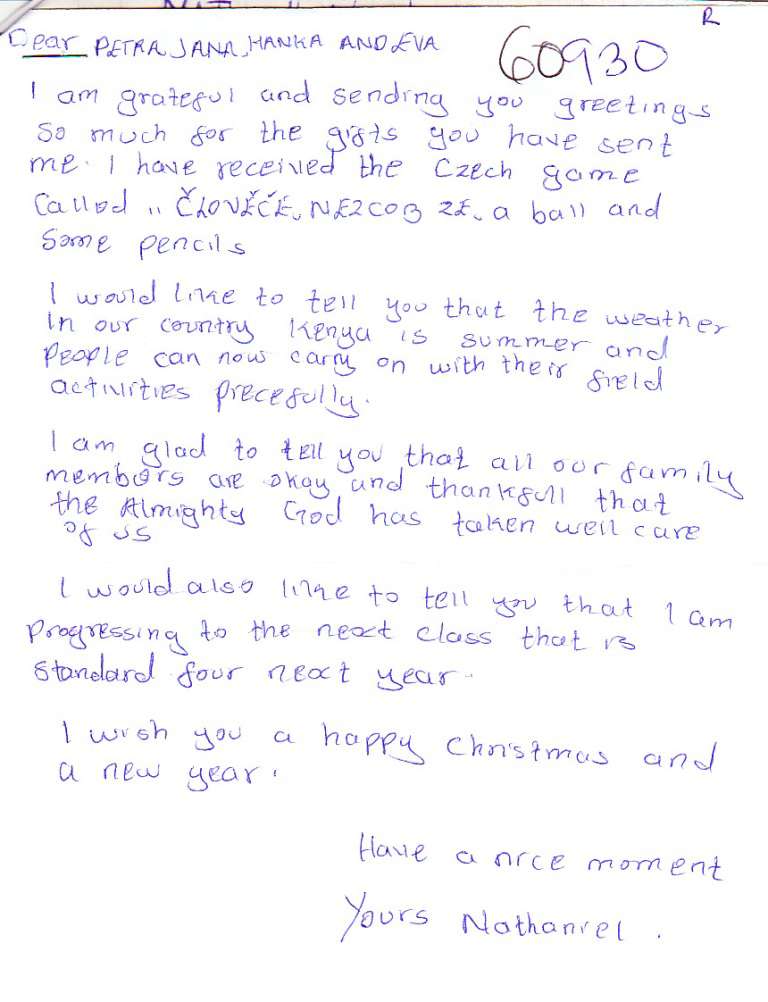 R
Dear PETRA, JANA, HANKA AND EVA
60930
I am grateful and sending you greetings
So much for the gifts you have sent
me. I have received the Czech game
Called ,, ČLOVĚČE, NEZLOB ZE, a ball and
Some pencils
I would like to tell you that the weather
In our country Kenya is summer and
People can now carry on with their field
activities precefully.
I am glad to tell you that all our family
members are okay and thankfull that
the Almighty God has taken well care
of us
I would also like to tell you that I am
Progressing to the next class that is
Standard four next year.
I wish you a happy Christmas and
a new year.
Have a nice moment
Yours Nathaniel.